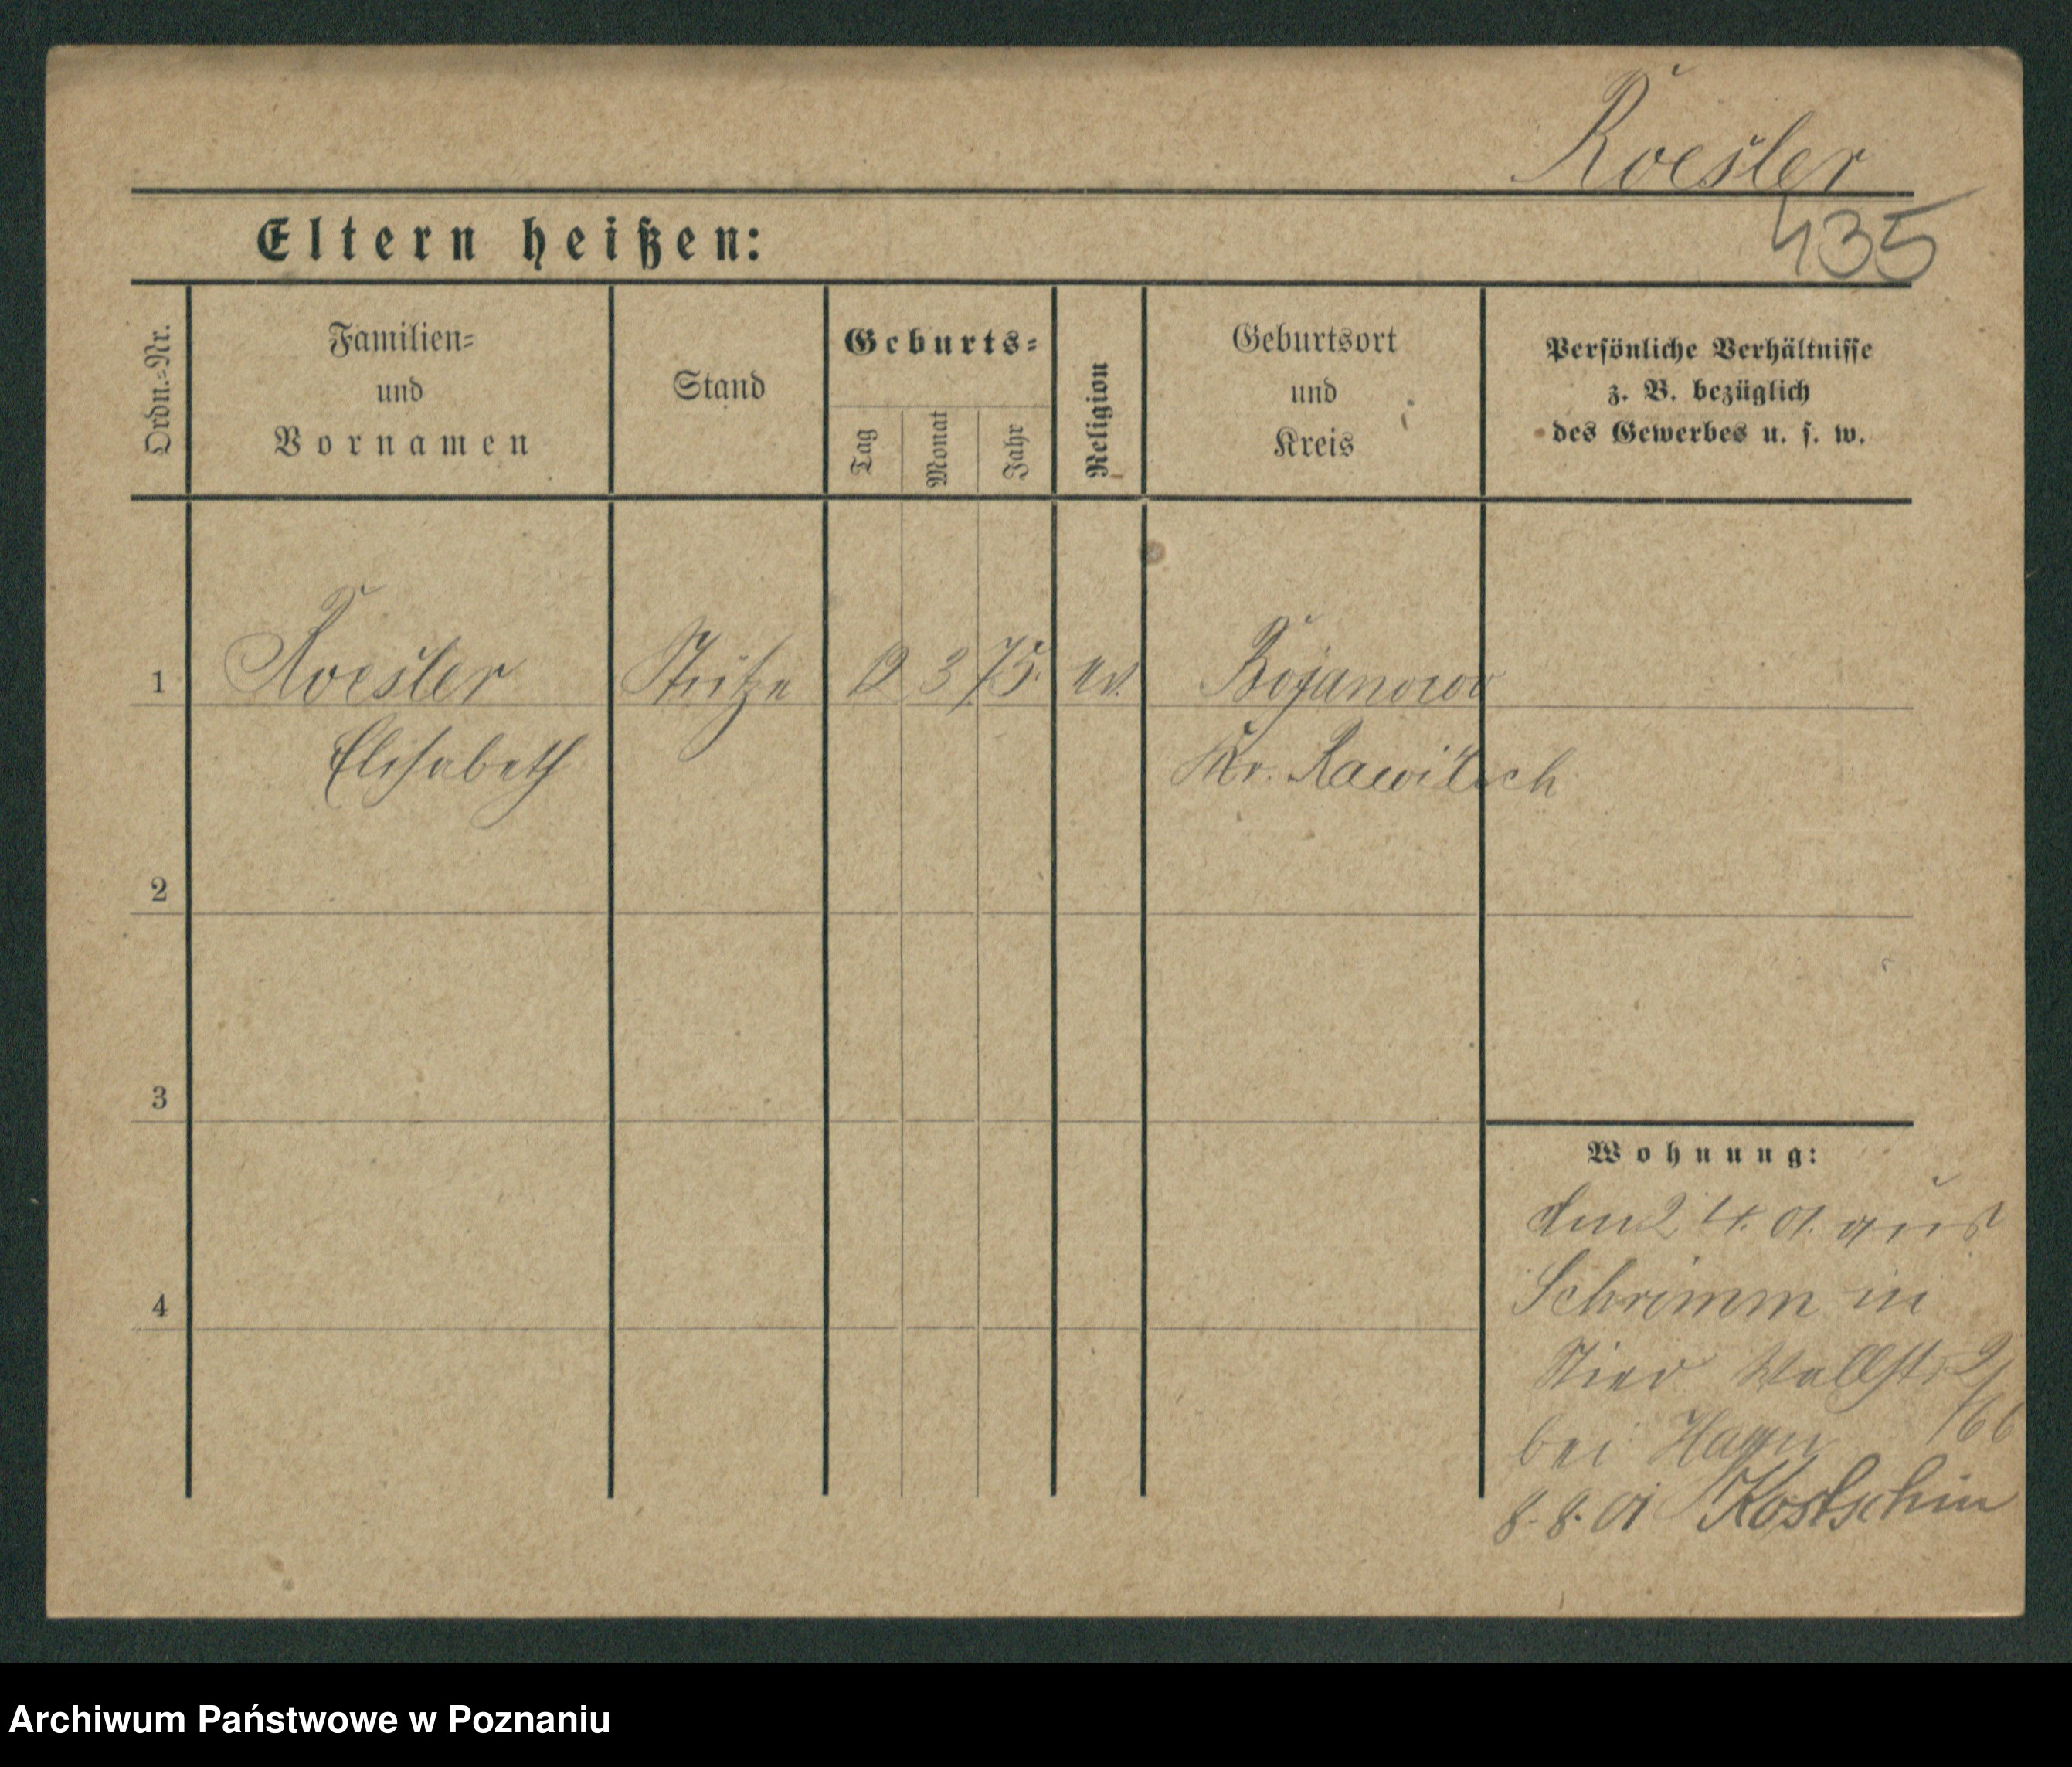 Roesler
435
Eltern heißen:
Ordn.=Nr.
Familien=
und
Vornamen
Stand
Geburts=
Tag
Monat
Jahr
Religion
Geburtsort
und
Kreis
Persönliche Verhältnisse
z. B. bezüglich
des Gewerbes u. s. w.
1 Roesler Stütze 12 3 75. ev. Bojanowo
Elisabeth Kr. Rawitsch
2
3
4
Wohnung:
2 4. 01. aus
Schrimm in
Wallstr. 2/
bei Hagen 166
8. 8. 01 Kostschin
Archiwum Państwowe w Poznaniu